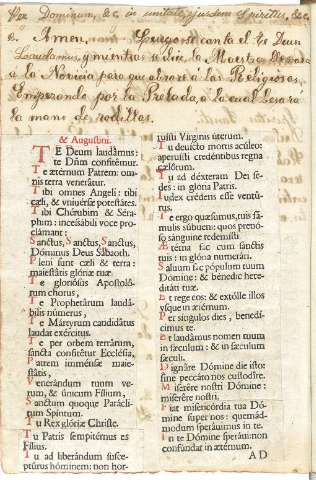 Per Dominum, &c. in unitate ejusdem Spiritus, &c.
R. Amen. Luego se canta el Te Deum
Laudamus, y mientras se dice la Maestra llevará
á la Novicia para que abrace á las Religiosas,
Empezando por la Prelada, á la cual besará
la mano de rodillas.
& Augustini.
TE Deum laudámus:
te Dñm confitémur.
Te æternum Patrem: om-
nis terra venerátur.
Tibi omnes Angeli: tibi
cæli, & vniuérsæ potestátes.
Tibi Chérubim & Séra-
phim: incessábili voce pro-
clámant:
Sanctus, Sanctus, Sanctus,
Dóminus Deus Sábaoth.
Pleni sunt cæli & terra:
maiestátis glóriæ tuæ.
Te gloriósus Apostoló-
rum chorus,
Te Prophetárum laudá-
bilis númerus,
Te Mártyrum candidátus
laudat exércitus.
Te per orbem terrárum,
sancta confitétur Ecclésia,
Patrem imménsæ maie-
státis,
Venerándum tuum ve-
rum, & únicum Fílium,
Sanctum quoque Parácli-
tum Spíritum.
Tu Rex glóriæ Christe.
Tu Patris sempitérnus es
Fílius.
Tu ad liberándum susce-
ptúrus hóminem: non hor-
ruísti Vírginis úterum.
Tu devícto mortis acúleo:
aperuísti credéntibus regna
cælórum.
Tu ad déxteram Dei se-
des: in glória Patris.
Iudex créderis esse ventú-
rus.
Te ergo quæsumus, tuis fá-
mulis súbueni: quos pretió-
so sánguine redemísti.
Ætérna fac cum sanctis
tuis: in glória numerári.
Saluum fac pópulum tuum
Dómine: & bénedic here-
ditáti tuæ.
Et rege eos: & extólle illos
vsque in ætérnum.
Per síngulos dies, benedí-
cimus te.
Et laudámus nomen tuum
in sæculum: & in sæculum
sæculi.
Dignáre Dómine die isto:
sine peccáto nos custodíre.
Miserére nostri Dómine:
miserére nostri.
Fiat misericórdia tua Dó-
mine super nos: quemád-
modum sperávimus in te.
In te Dómine sperávi: non
confúndar in ætérnum.
AD